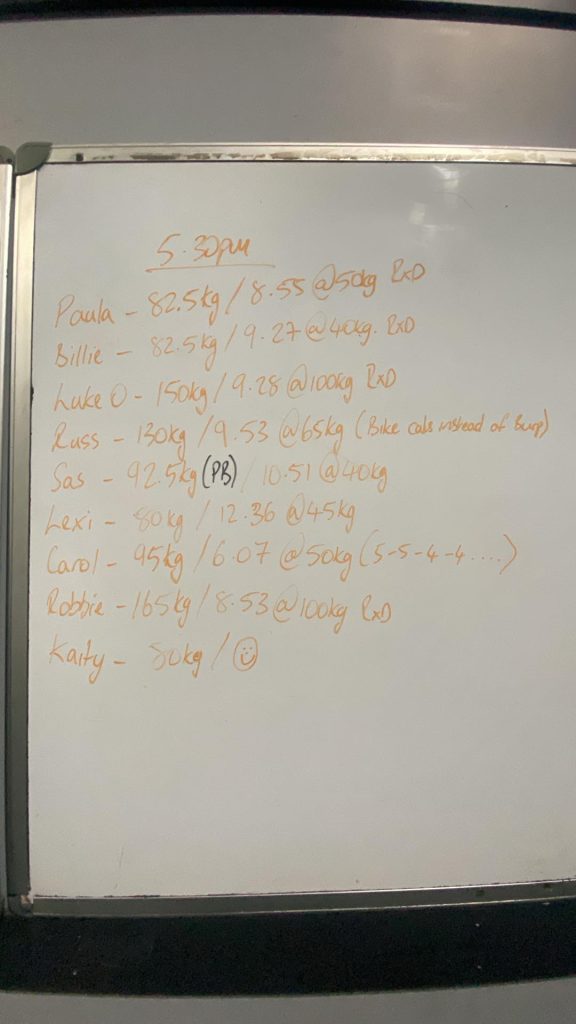 5.30pm
Paula - 82.5kg / 8.55 @50kg RxD
Billie - 82.5kg / 9.27 @ 40kg. RxD
Luke O - 150kg / 9.28 @100kg RxD
Russ - 130kg / 9.53 @65kg (Bike cals instead of Burp)
Sas - 92.5kg (PB) / 10.51 @40kg
Lexi - 80kg / 12.36 @45kg
Carol - 95kg / 6.07 @ 50kg (5-5-4-4....)
Robbie - 165kg / 8.53 @100kg RxD
Kaity - kg / ☺